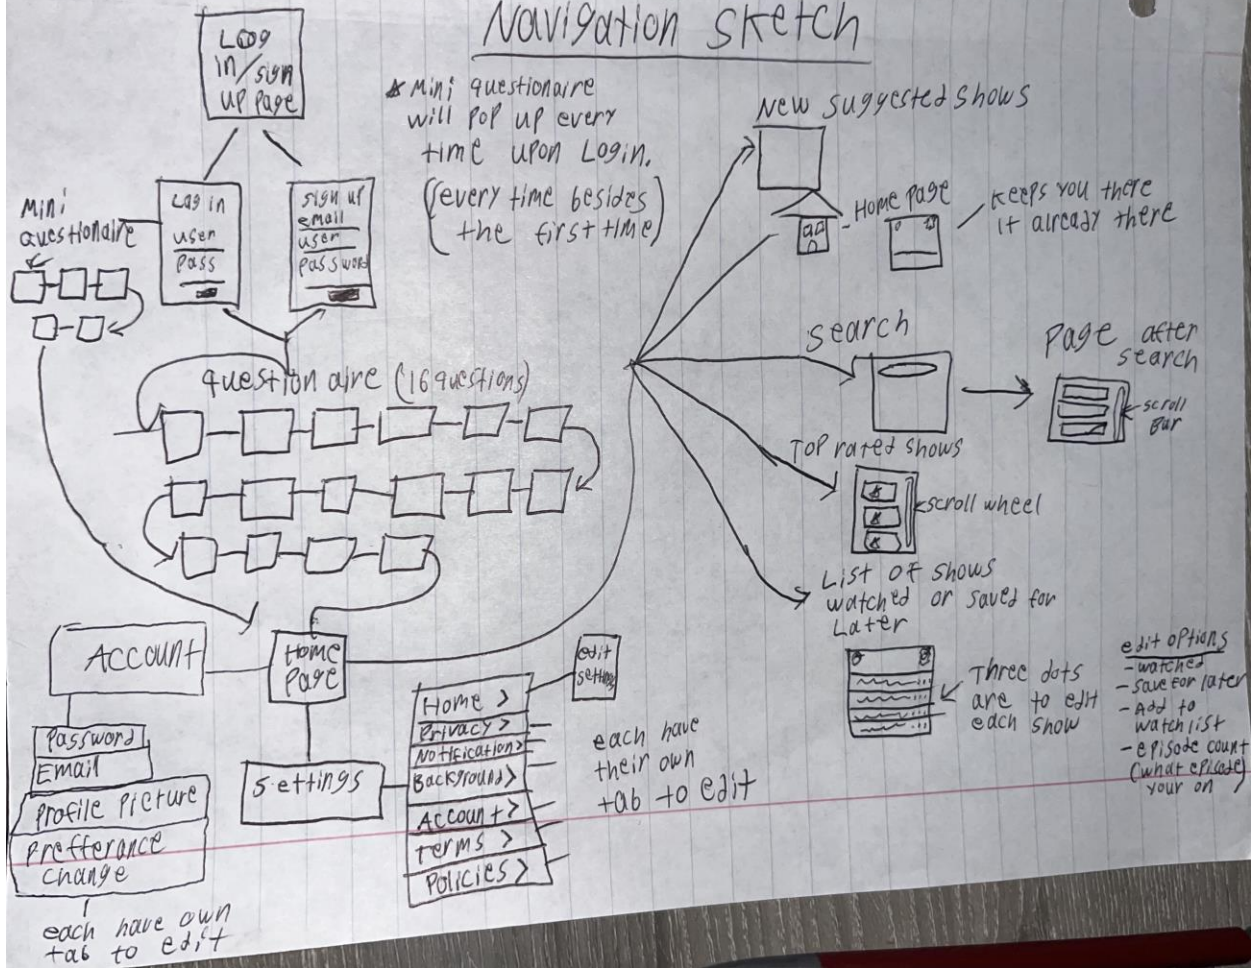 Navigation Sketch
Loog
in/sign
up page
* Mini questionaire
will pop up every
time upon Login.
(every time besides
the first time)
Mini
questionaire
Log in
user
pass
sign up
email
user
password
questionaire (16 questions)
New suggested shows
Home page
Keeps you there
it already there
Search
Page after
search
scroll
Bar
Top rated shows
scroll wheel
List of shows
watched or saved for
Later
Three dots
are to edit
each show
edit options
- watched
- save for later
- Add to
watch list
- episode count
(what episode)
your on
Account
Password
Email
Profile picture
Prefferance
change
each have own
tab to edit
Home
Page
Settings
Home >
Privacy >
Notification >
Background >
Account >
Terms >
Policies >
edit
setting
each have
their own
tab to edit